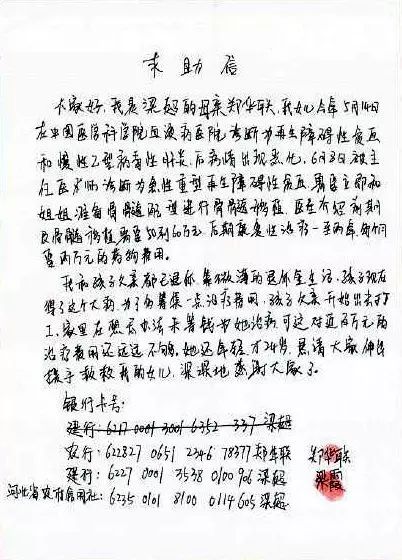 求助信
大家好,我是梁超的母亲郑华联,我女儿今年5月14日
在中国医学科学院血液病医院诊断为再生障碍性贫血
和慢性乙型病毒性肝炎,后病情出现恶化,6月3日被主
任医师诊断为急性重型再生障碍性贫血,需要立即和
姐姐准备骨髓配型进行骨髓移植,医生介绍前期
良骨髓移植需要50到60万元,后期康复性治疗一至两年,每个月
要两万元的药物费用。
我和孩子父亲都已退休,靠微薄的退休金生活,孩子现在
得了这个大病,为了能筹集一点治疗费用,孩子父亲开始出去打
工,家里在想尽办法来筹钱为她治病,可这对近百万元的
治疗费用还远远不够,她还年轻,才24岁,恳请大家伸出
援手救救我的女儿,深深地感谢大家了。
银行卡号:
建行:6217 0001 3001 6352 337 梁超
农行:622827 0651 2346 78377 郑华联
建行:6227 0001 3538 0100 906 梁超
河北省农村信用社:6235 0101 8100 0114 605 梁超
郑华联
梁霞